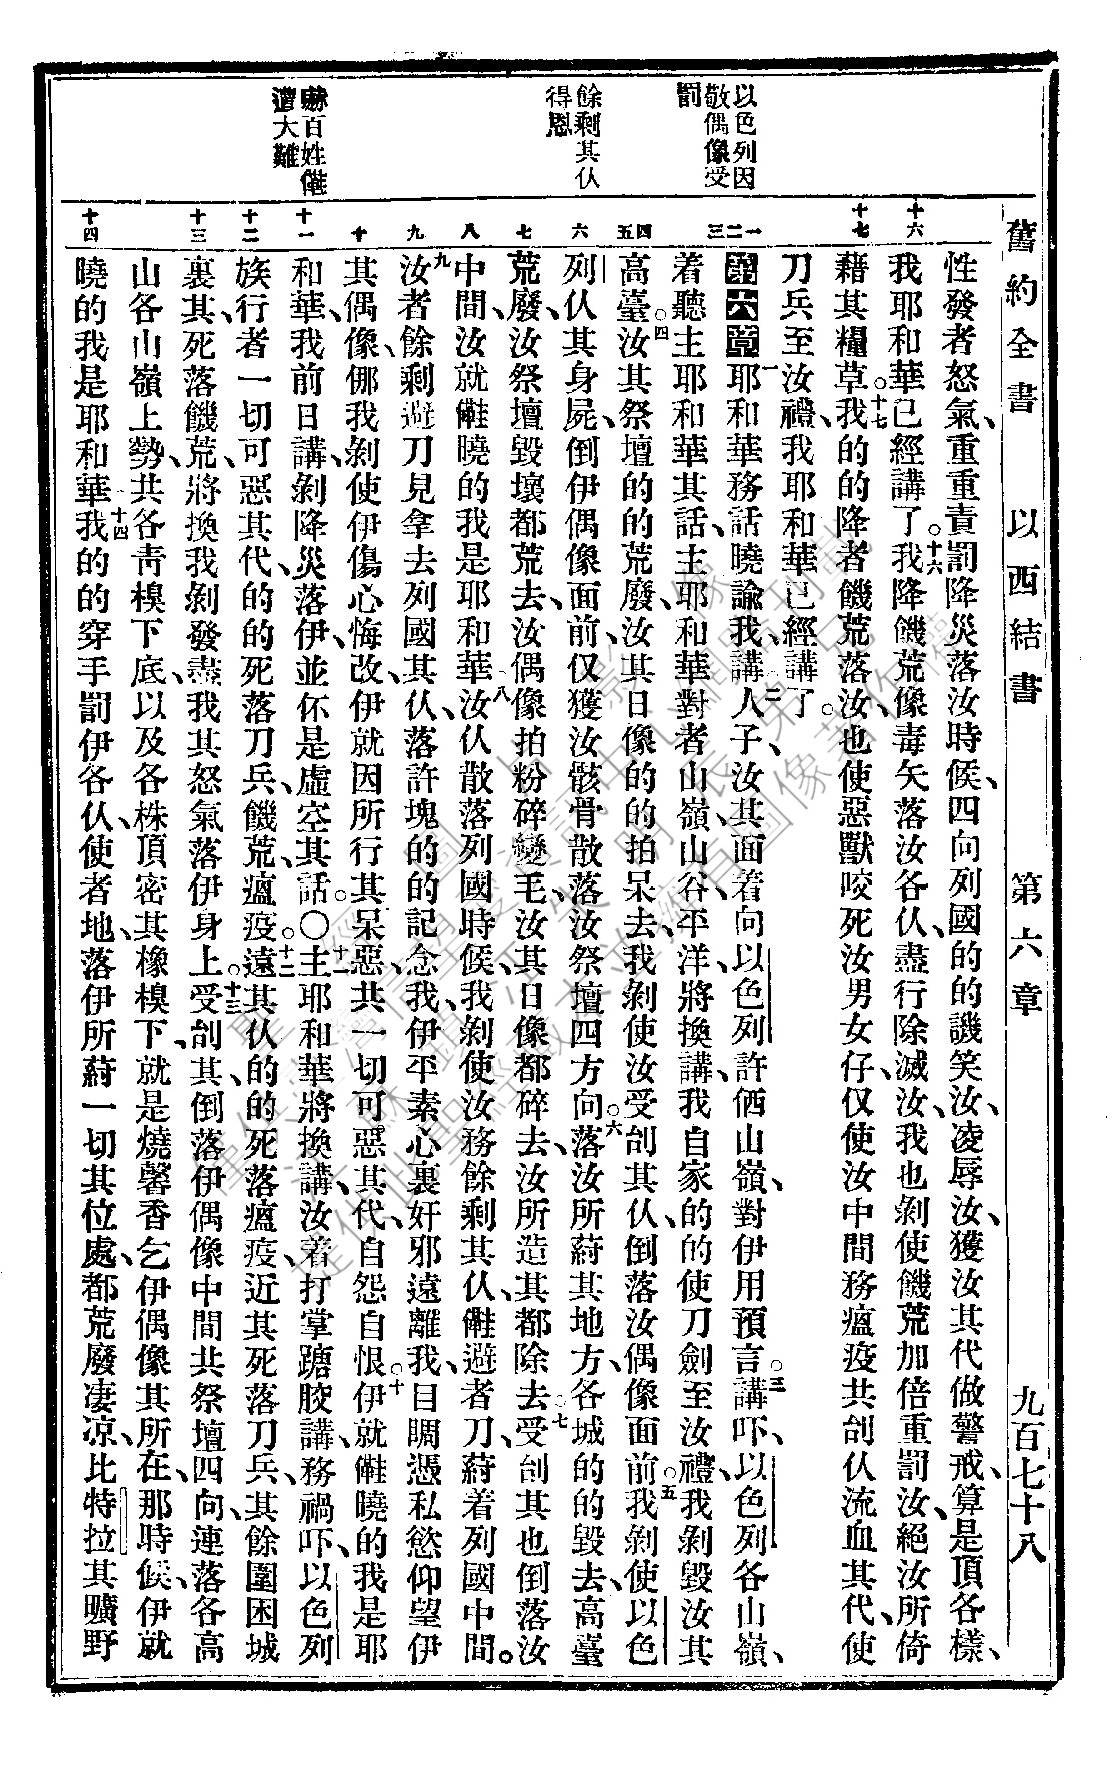 舊約全書 以西結書 第六章 九百七十八
以色列因
敬偶像受
罰
餘剩其仈
得恩
嚇百姓𣍐
遭大難
十六
十七
一二
三
四五
六
七
八
九
十
十一
十二
十三
十四
性發者怒氣、重重責罰降災落汝時候、四向列國的的譏笑汝、凌辱汝、獲汝其代做警戒、算是頂各樣、
我耶和華已經講了。十六我降饑荒像毒矢落汝各仈、盡行除滅汝、我也剝使饑荒加倍重罰汝、絕汝所倚
藉其糧草。十七我的的降者饑荒落汝、也使惡獸咬死汝男女仔、仅使汝中間務瘟疫共刣仈流血其代、使
刀兵至汝禮、我耶和華已經講了。
第六章 一耶和華務話曉諭我、講、二人子、汝其面着向以色列許仴山嶺、對伊用預言講。三吓、以色列各山嶺、
着聽主耶和華其話、主耶和華對者山嶺、山谷、平洋、將換講、我自家的的使刀劍至汝禮、我剝毀汝其
高臺。四汝其祭壇的的荒廢、汝其日像的的拍呆去、我剝使汝受刣其仈、倒落汝偶像面前。五我剝使以色
列仈其身屍、倒伊偶像面前、仅獲汝骸骨散落汝祭壇四方向。六落汝所䔟其地方、各城的的毀去、高臺
荒廢、汝祭壇毀壞都荒去、汝偶像拍粉碎變毛、汝其日像都碎去、汝所造其都除去。七受刣其也倒落汝
中間、汝就𣍐曉的我是耶和華。八汝仈散落列國時候、我剝使汝務餘剩其仈、𣍐避者刀、䔟着列國中間。
九汝者餘剩避刀見拿去列國其仈、落許塊的的記念我、伊平素心裏奸邪遠離我、目睭憑私慾仰望伊
其偶像、㑚我剝使伊傷心悔改、伊就因所行其呆惡、共一切可惡其代、自怨自恨。十伊就𣍐曉的我是耶
和華、我前日講、剝降災落伊、並伓是虛空其話。〇十一主耶和華將換講、汝着打掌蹗骹講、務禍吓、以色列
族行者一切可惡其代、的的死落刀兵、饑荒、瘟疫。十二遠其仈的的死落瘟疫、近其死落刀兵、其餘圍困城
裏其、死落饑荒、將換我剝發盡我其怒氣落伊身上。十三受刣其、倒落伊偶像中間、共祭壇四向、連落各高
山各山嶺上勢、共各靑模下底、以及各株頂密其橡模下、就是燒馨香乞伊偶像其所在、那時候、伊就
曉的我是耶和華。十四我的的穿手罰伊各仈、使者地、落伊所䔟一切其位處、都荒廢凄凉、比特拉其曠野